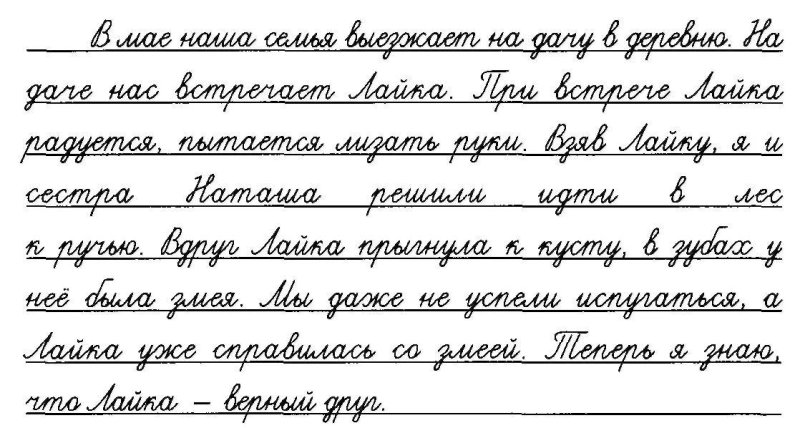 В мае наша семья выезжает на дачу в деревню. На
даче нас встречает Лайка. При встрече Лайка
радуется, пытается лизать руки. Взяв Лайку, я и
сестра Наташа решили идти в лес
к ручью. Вдруг Лайка прыгнула к кусту, в зубах у
неё была змея. Мы даже не успели испугаться, а
Лайка уже справилась со змеей. Теперь я знаю,
что Лайка – верный друг.